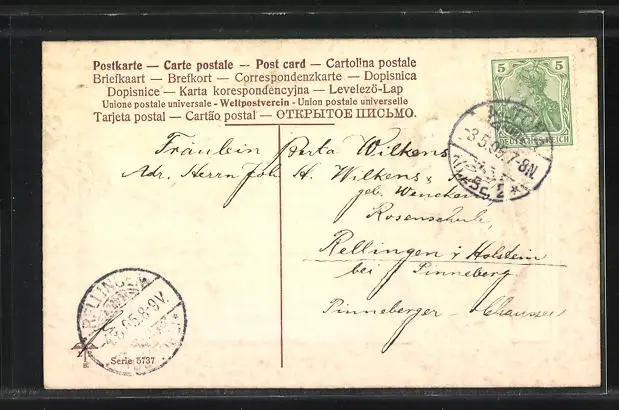 Postkarte — Carte postale — Post card — Cartolina postale
Briefkaart — Brefkort — Correspondenzkarte — Dopisnica
Dopisnice — Karta korespondencyjna — Levelező-Lap
Unione postale universale - Weltpostverein - Union postale universelle
Tarjeta postal — Cartão postal — ОТКРЫТОЕ ПИСЬМО.
5 5
DEUTSCHES REICH
3.5.05.7-8N.
Fräulein Berta Wilkens
Adr. Herrn Joh. H. Wilkens
geb.
Rosenschule
Rellingen i/Holstein
bei Pinneberg
Pinneberger Chaussee
RELLINGEN
4.5.05.8-9V.
Serie 5737